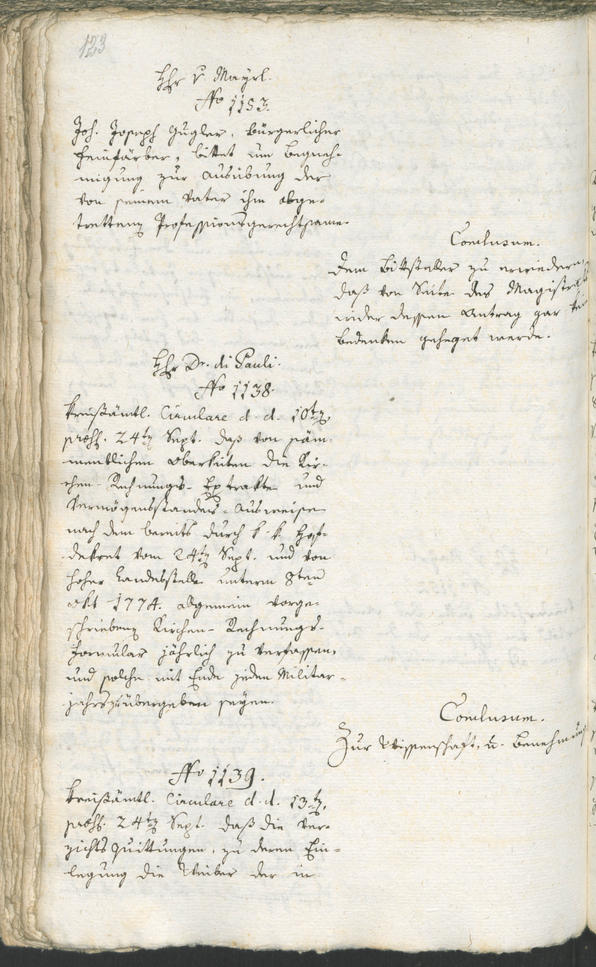 123
Hhr v. Mayrl.
No 1153.
Joh. Joseph Gugler, bürgerlicher
Feinfärber, bittet um Begneh-
migung zur Ausübung der
von seinem Vater ihm abge-
trettenen Professionsgerechtsame.
Conclusum.
Dem Bittsteller zu erwiedern,
daß von Seite des Magistrats
wider dessen Antrag gar kein
Bedenken geheget werde.
Hhr Dr. di Pauli.
No 1138.
Kreißämtl. Circulare d. d. 10ten
präs. 24ten Sept. daß von säm-
mentlichen Oberkeiten die Kir-
chen-Rechnungs-Extrakte und
Vermögensstandes-Ausweise
nach dem bereits durch k. k. Hof-
dekret vom 24ten Sept. und von
hoher Landesstelle unterm 8ten
Okt 1774. allgemein vorge-
schriebenen Kirchen-Rechnungs-
Formular jährlich zu verfassen,
und solche mit Ende jeden Militar-
jahrs zu übergeben seyen.
Conclusum.
Zur Wissenschaft, u. Benehmung
No 1139.
Kreißämtl. Circulare d. d. 13ten,
präs. 24ten Sept. daß die Ver-
zichts Quittungen, zu deren Ein-
legung die Weiber der in